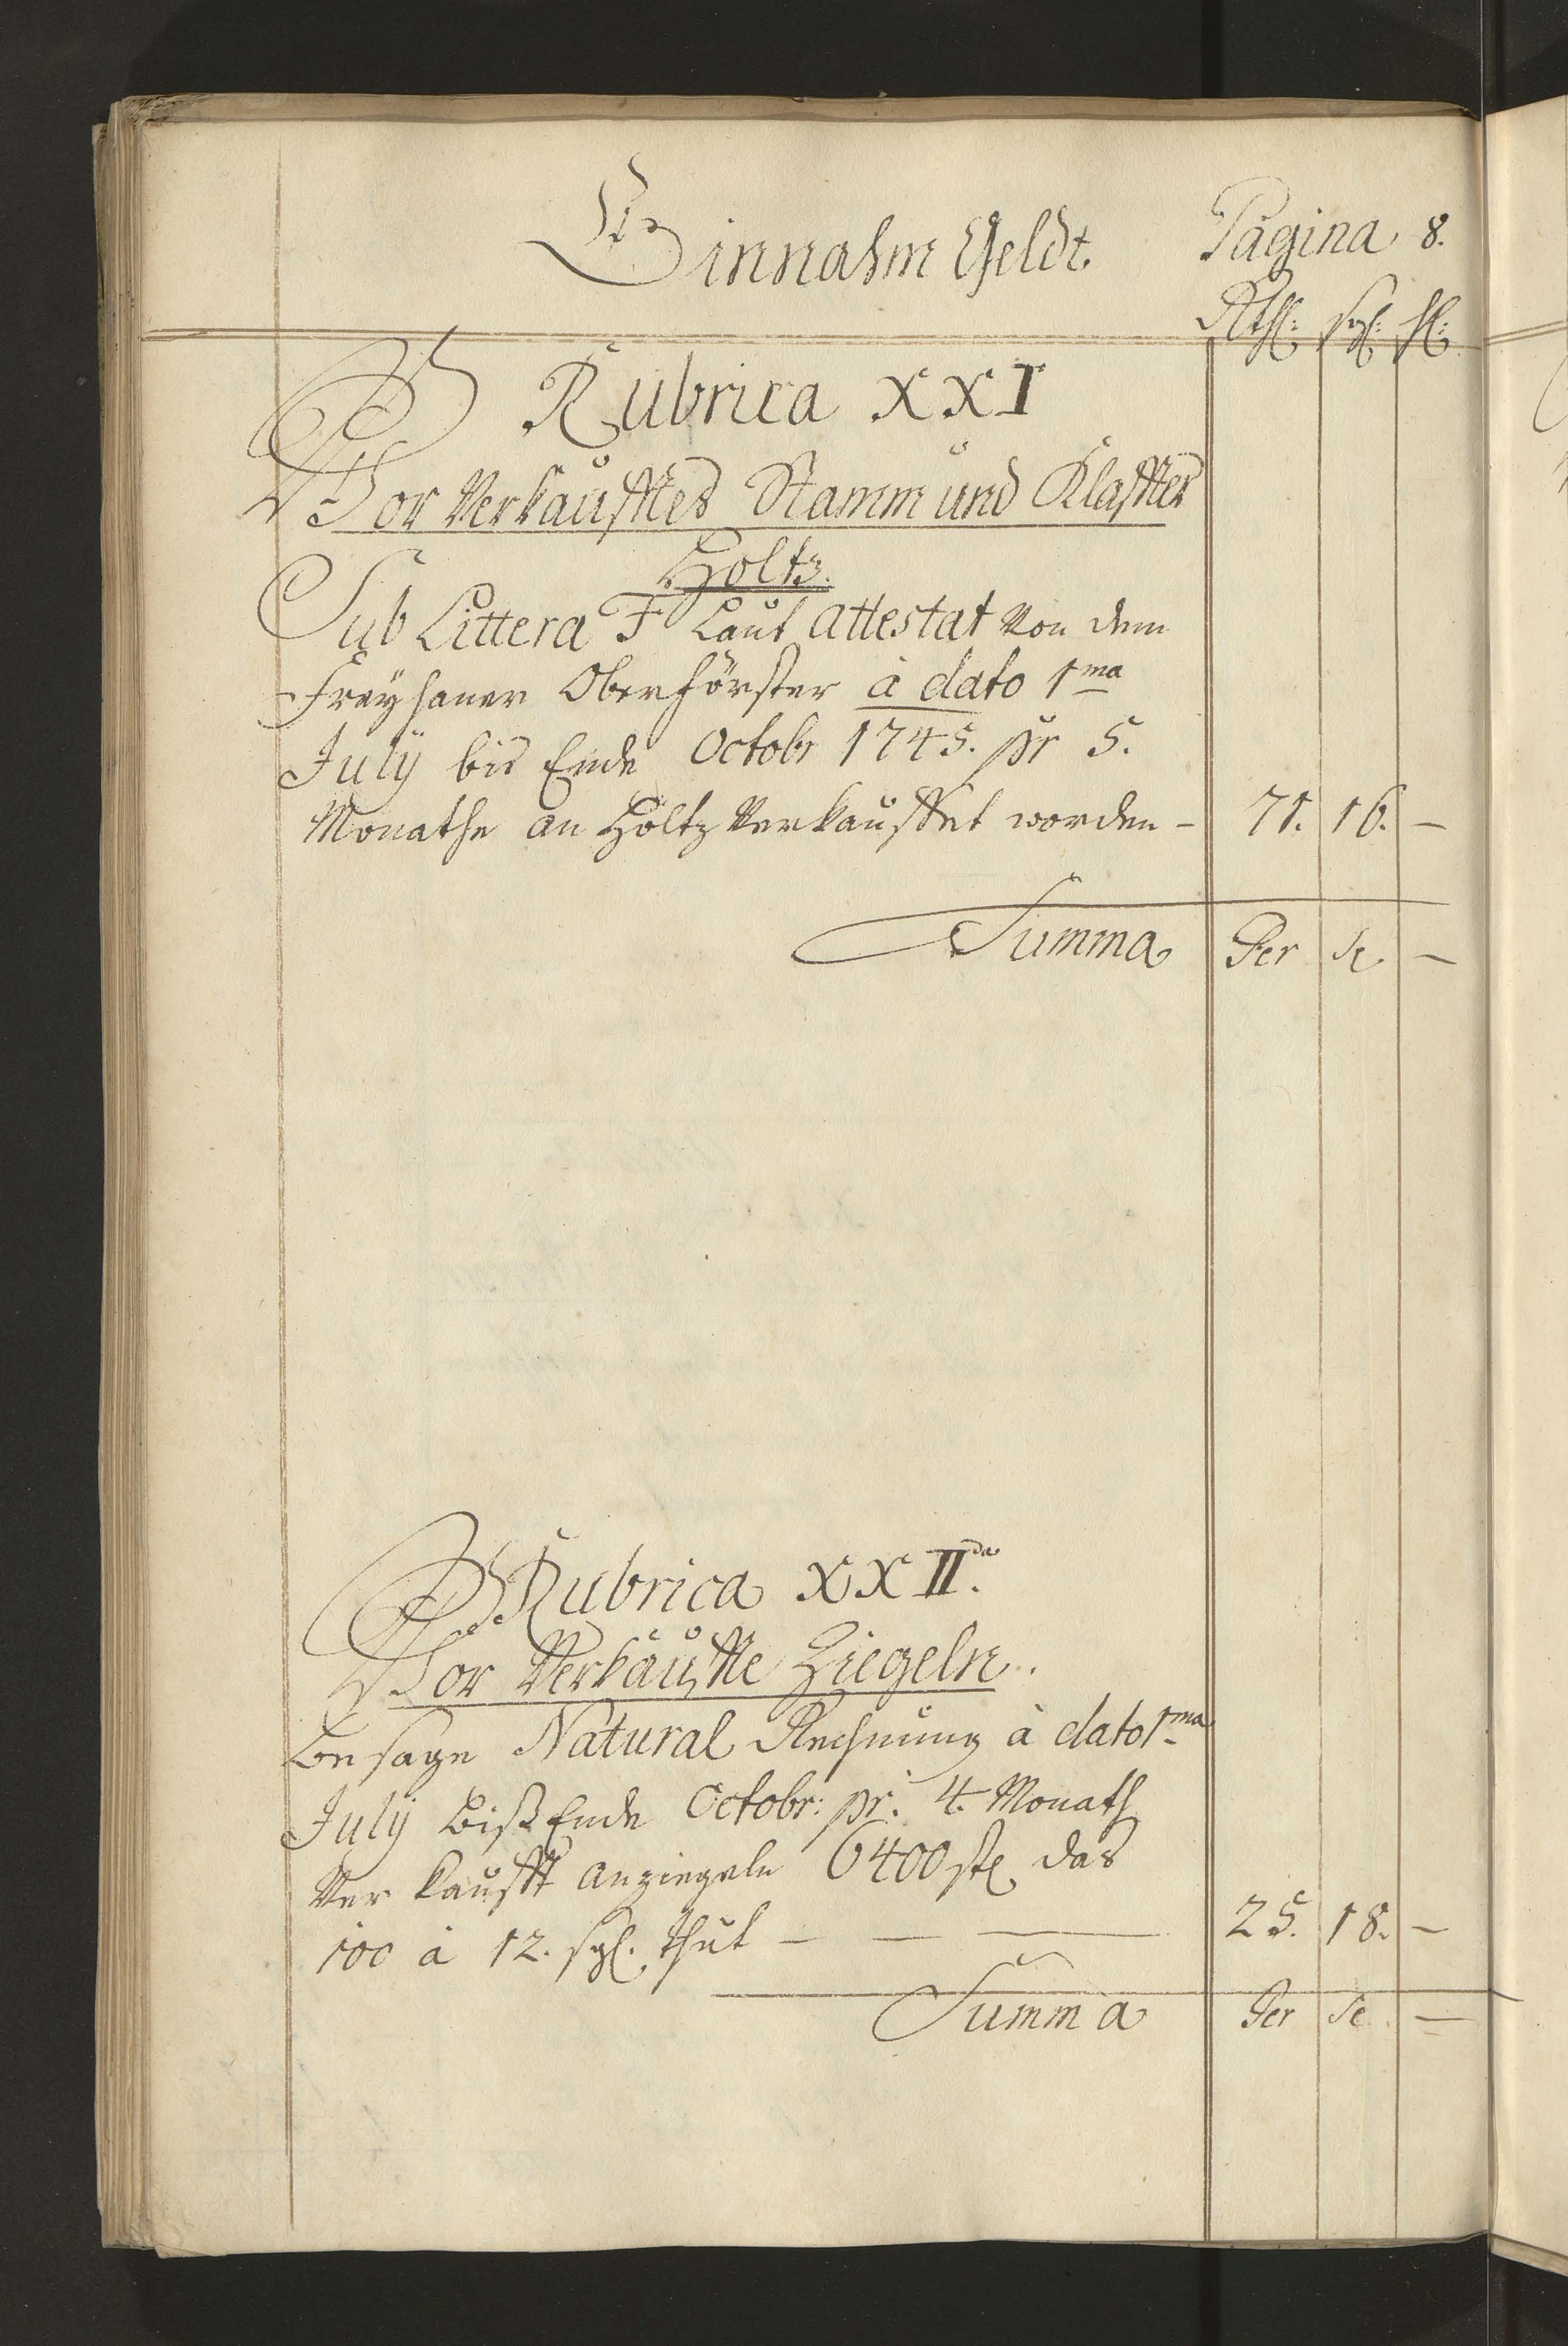 Einnahm Geldt. Pagina 8.
Rthl: sgl: hl:
Rubrica XXI
Vor Verkaufftes Stamm und Klaffter
Holtz.
Sub Littera F Laut Attestat von dem
Freyhaner Oberförster à dato 1ma
July bis Ende Octobr 1745. pr 5.
Monathe an Holtz verkauffet worden - 71. 16. -
Summa Per se -
Rubrica XXIIda.
Vor Verkauffte Ziegeln.
Besage Natural Rechnung à dato 1ma
July biß Ende Octobr: pr: 4. Monath
Ver kaufft an Ziegeln 6400 stk das
100 à 12. sgl. thut - - - 25. 18. -
Summa Per se. -